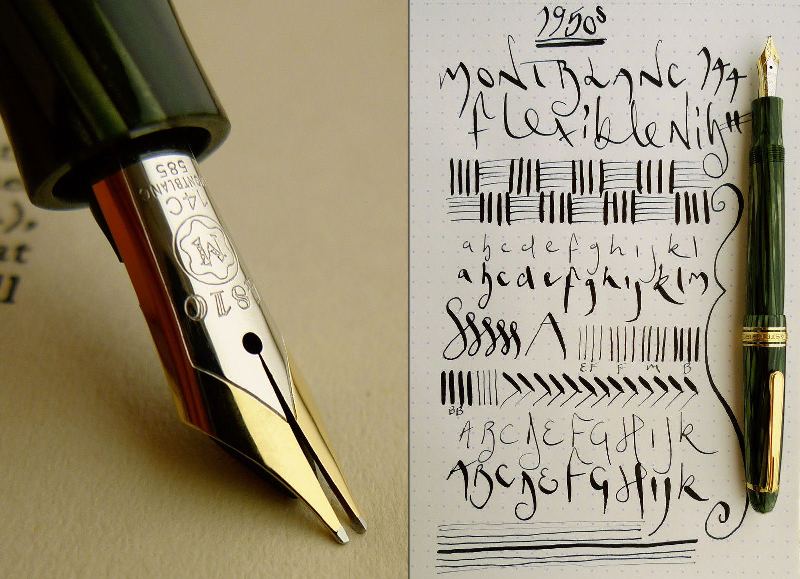 MONTBLANC
585
14C
M
4810
at
ll
1950s
MONTBLANC 144
flexible Nib
abcdefghijkl
abcdefghijklm
EF F M B
BB
ABCDEFGHIJK
ABCDEFGHIJK